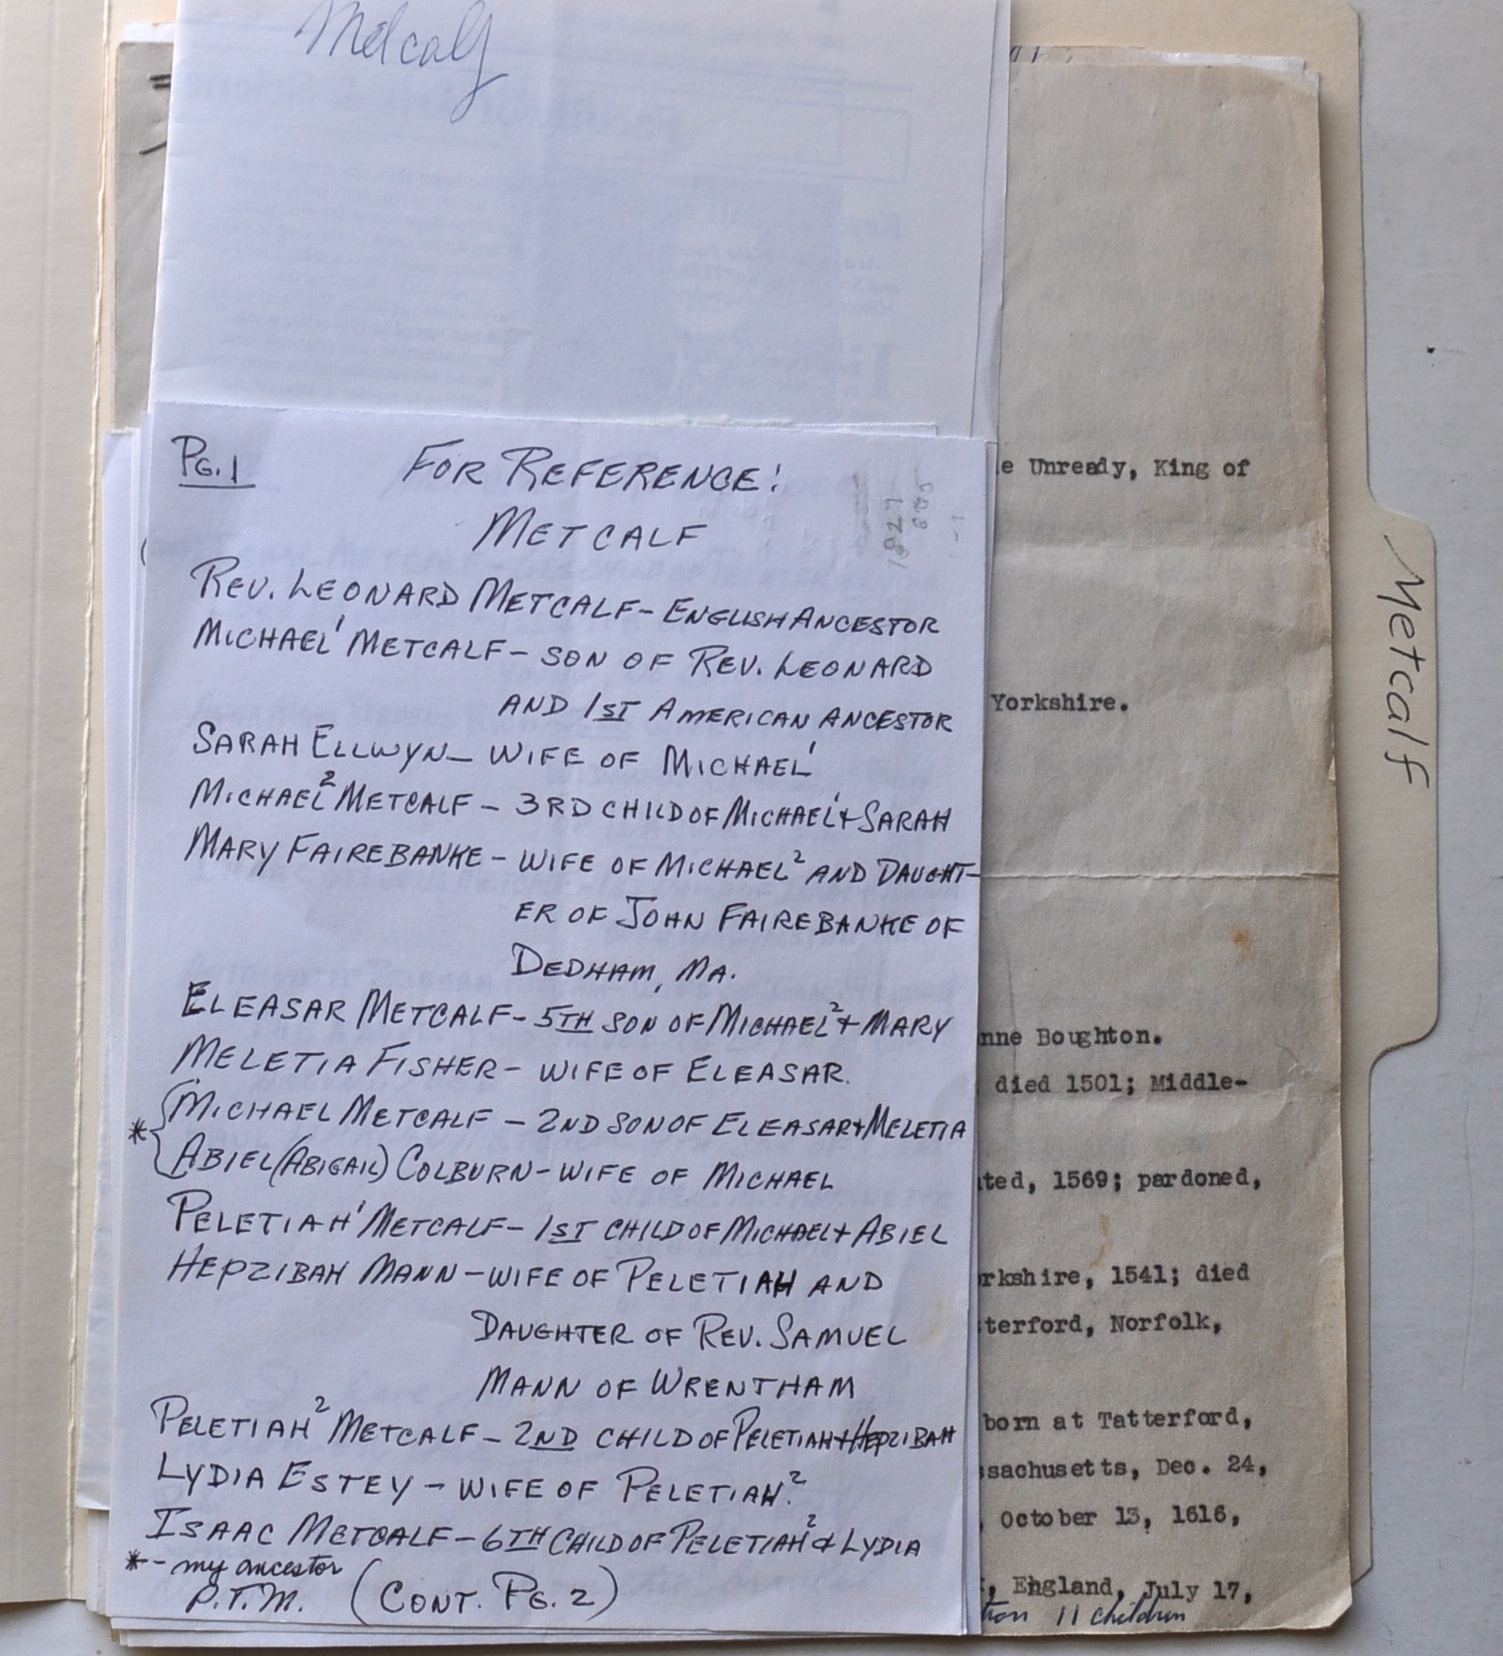 Metcalf
Pg. 1
FOR REFERENCE:
METCALF
REV. LEONARD METCALF- ENGLISH ANCESTOR
MICHAEL' METCALF- SON OF REV. LEONARD
AND 1ST AMERICAN ANCESTOR
SARAH ELLWYN- WIFE OF MICHAEL'
MICHAEL² METCALF- 3RD CHILD OF MICHAEL'+ SARAH
MARY FAIREBANKE- WIFE OF MICHAEL² AND DAUGHT-
ER OF JOHN FAIREBANKE OF
DEDHAM, MA.
ELEASAR METCALF- 5TH SON OF MICHAEL²+ MARY
MELETIA FISHER- WIFE OF ELEASAR.
* { MICHAEL METCALF- 2ND SON OF ELEASAR+MELETIA
ABIEL (ABIGAIL) COLBURN- WIFE OF MICHAEL
PELETIAH' METCALF- 1ST CHILD OF MICHAEL+ ABIEL
HEPZIBAH MANN- WIFE OF PELETIAH AND
DAUGHTER OF REV. SAMUEL
MANN OF WRENTHAM
PELETIAH² METCALF- 2ND CHILD OF PELETIAH+HEPZIBAH
LYDIA ESTEY- WIFE OF PELETIAH.²
ISAAC METCALF- 6TH CHILD OF PELETIAH² & LYDIA
*- my ancestor
P.T.M.
(CONT. PG. 2)
1827
Unready, King of
Yorkshire.
Boughton.
died 1501; Middle-
1569; pardoned,
1541; died
Norfolk,
born at Tatterford,
Dec. 24,
October 13, 1616,
England, July 17,
11 children
Metcalf